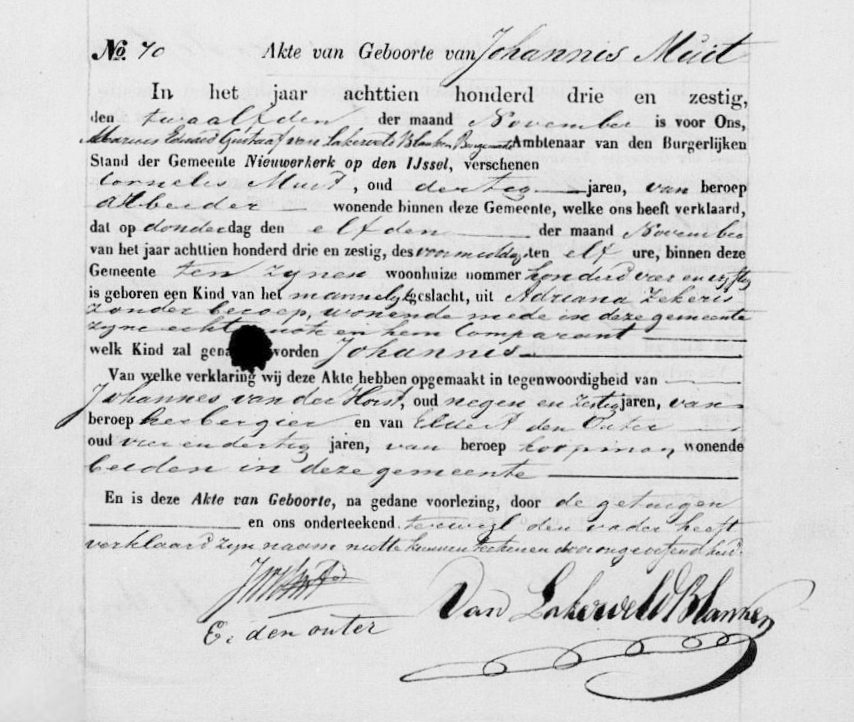 No. 70 Akte van Geboorte van Johannis Muit
In het jaar achttien honderd drie en zestig,
den twaalfden der maand November is voor Ons,
Marius Eduard Gustaaf van Lakerveld Blanken Burgemeester Ambtenaar van den Burgerlijken
Stand der Gemeente Nieuwerkerk op den IJssel, verschenen
Cornelis Muit, oud dertig jaren, van beroep
arbeider wonende binnen deze Gemeente, welke ons heeft verklaard,
dat op donderdag den elfden der maand November
van het jaar achttien honderd drie en zestig, des voormiddags ten elf ure, binnen deze
Gemeente ten zynen woonhuize nommer honderd vier en vyftig
is geboren een Kind van het mannelyk geslacht, uit Adriana Zekeris
zonder beroep, wonende mede in deze gemeente
zyne echtgenoote en hem Comparant
welk Kind zal gena worden Johannis
Van welke verklaring wij deze Akte hebben opgemaakt in tegenwoordigheid van
Johannes van der Horst, oud negen en zestig jaren, van
beroep herbergier en van Eldert den Outer
oud vier en dertig jaren, van beroep koopman, wonende
beiden in deze gemeente
En is deze Akte van Geboorte, na gedane voorlezing, door de getuigen
en ons onderteekend. terwijl den vader heeft
verklaard zyn naam niet te kunnen teekenen door ongeoefendheid.
E. den outer Van Lakerveld Blanken